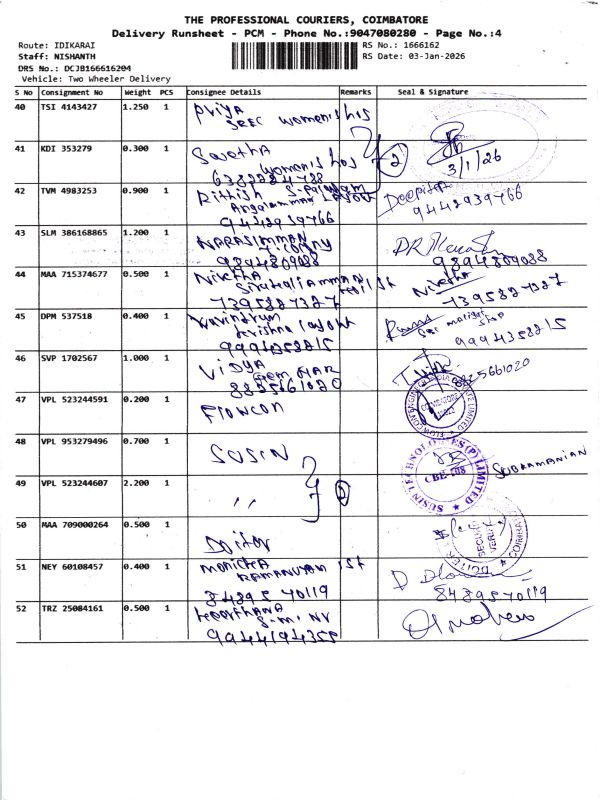 THE PROFESSIONAL COURIERS, COIMBATORE
Delivery Runsheet - PCM - Phone No.:9047080280 - Page No.:4
Route: IDIKARAI
RS No.: 1666162
Staff: NISHANTH
RS Date: 03-Jan-2026
DRS No.: DCJB166616204
Vehicle: Two Wheeler Delivery
S No Consignment No Weight PCS Consignee Details Remarks Seal & Signature
40 TSI 4143427 1.250 1 Priya
SREC womens hos
41 KDI 353279 0.300 1 Swetha
womens hos
6382224788
2
3/1/26
42 TVM 4983253 0.900 1 Rithish S-Palayam
Angalamman Layout
9442939766
Deepika
9442939766
43 SLM 386168865 1.200 1 NARASIMMAN
9894809088
9894809088
44 MAA 715374677 0.500 1 Nivetha
1st
7395887327
Nivetha
7395887327
45 DPM 537518 0.400 1
Krishna layout
9994358815
9994358815
46 SVP 1702567 1.000 1 VIDYA
8825661020
8825661020
47 VPL 523244591 0.200 1 Flowcon
COIMBATORE
48 VPL 953279496 0.700 1 SUSIN
SUSIN TECHNOLOGIES (P) LIMITED
CBE-108
SUBRAMANIAN
49 VPL 523244607 2.200 1 ,,
2
50 MAA 709000264 0.500 1 Doiter
SECURITY
51 NEY 60108457 0.400 1 Monicka
RAMANUJAM 1st
8489570119
8489570119
52 TRZ 25084161 0.500 1 Keerthana
S.M. NR
9944194355